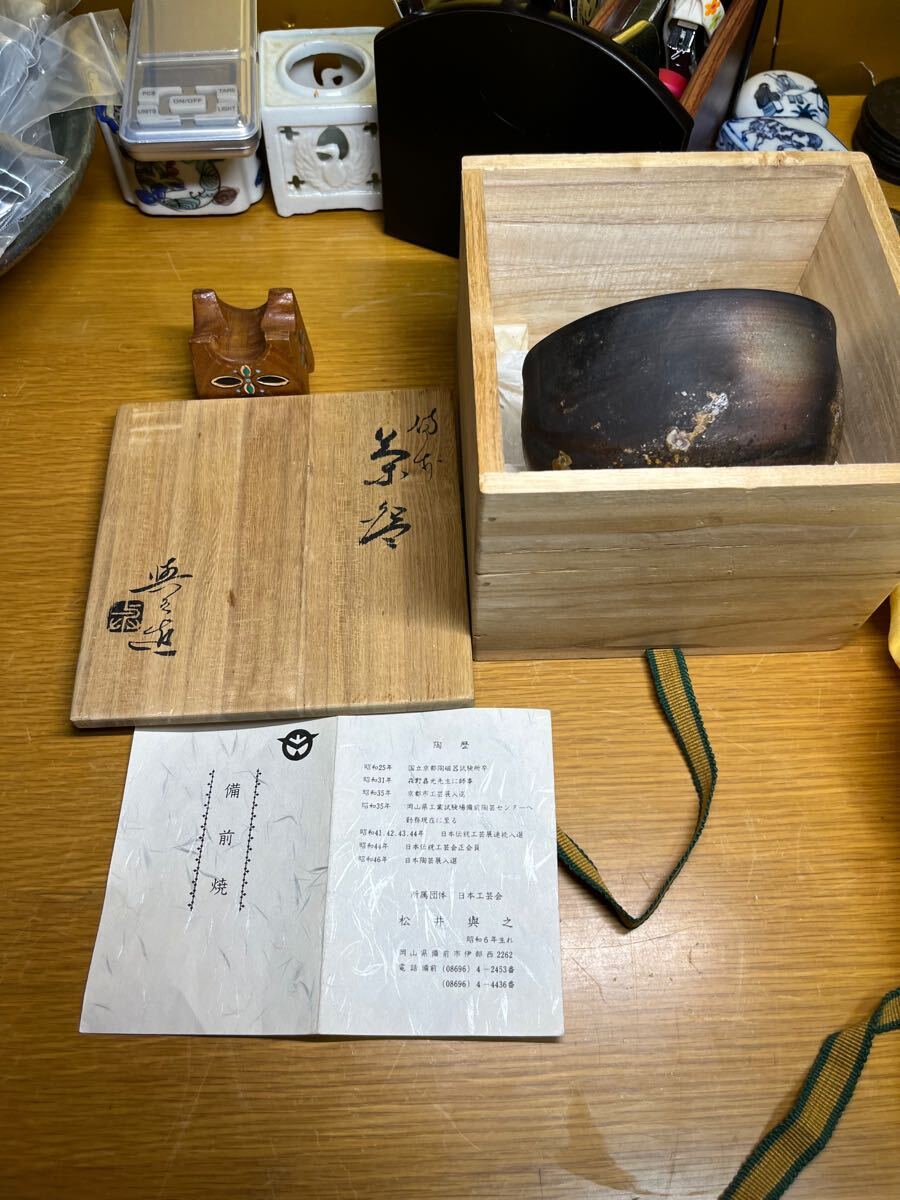 PCS
TARE
UNITS
ON/OFF
LIGHT
備前
茶盌
與之造
備前焼
陶歴
昭和25年 国立京都陶磁器試験所卒
昭和31年 森野嘉光先生に師事
昭和35年 京都市工芸展入選
昭和35年 岡山県工業試験場備前陶芸センターへ
勤務現在に至る
昭和41.42.43.44年 日本伝統工芸展連続入選
昭和44年 日本伝統工芸会正会員
昭和46年 日本陶芸展入選
所属団体 日本工芸会
松井與之
昭和6年生れ
岡山県備前市伊部西2262
電話備前(08696)4-2453番
(08696)4-4436番